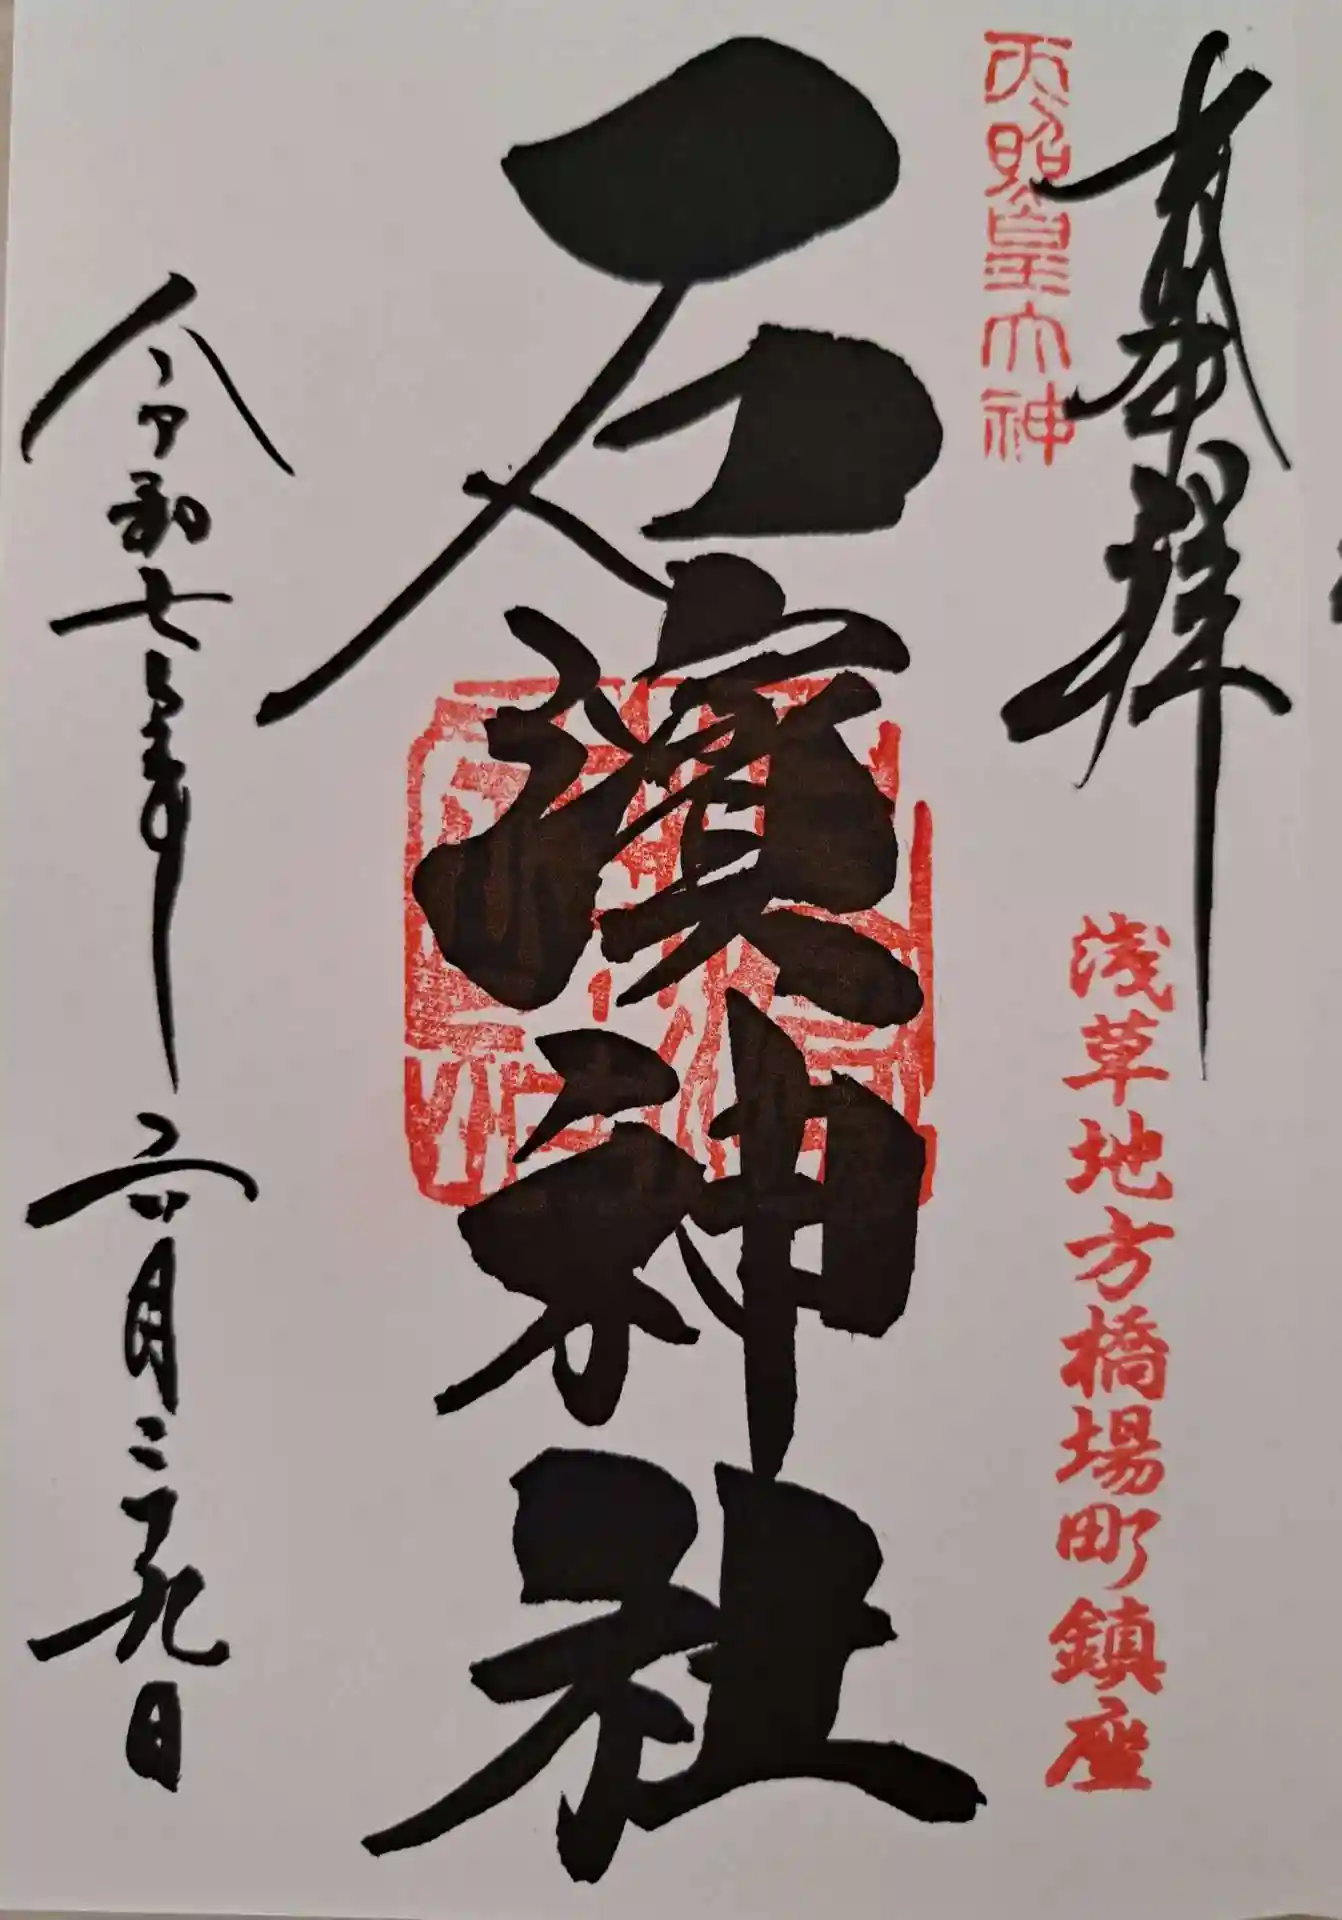 奉拝
天照皇大神
浅草地方橋場町鎮座
石濱神社
令和七年六月二十九日